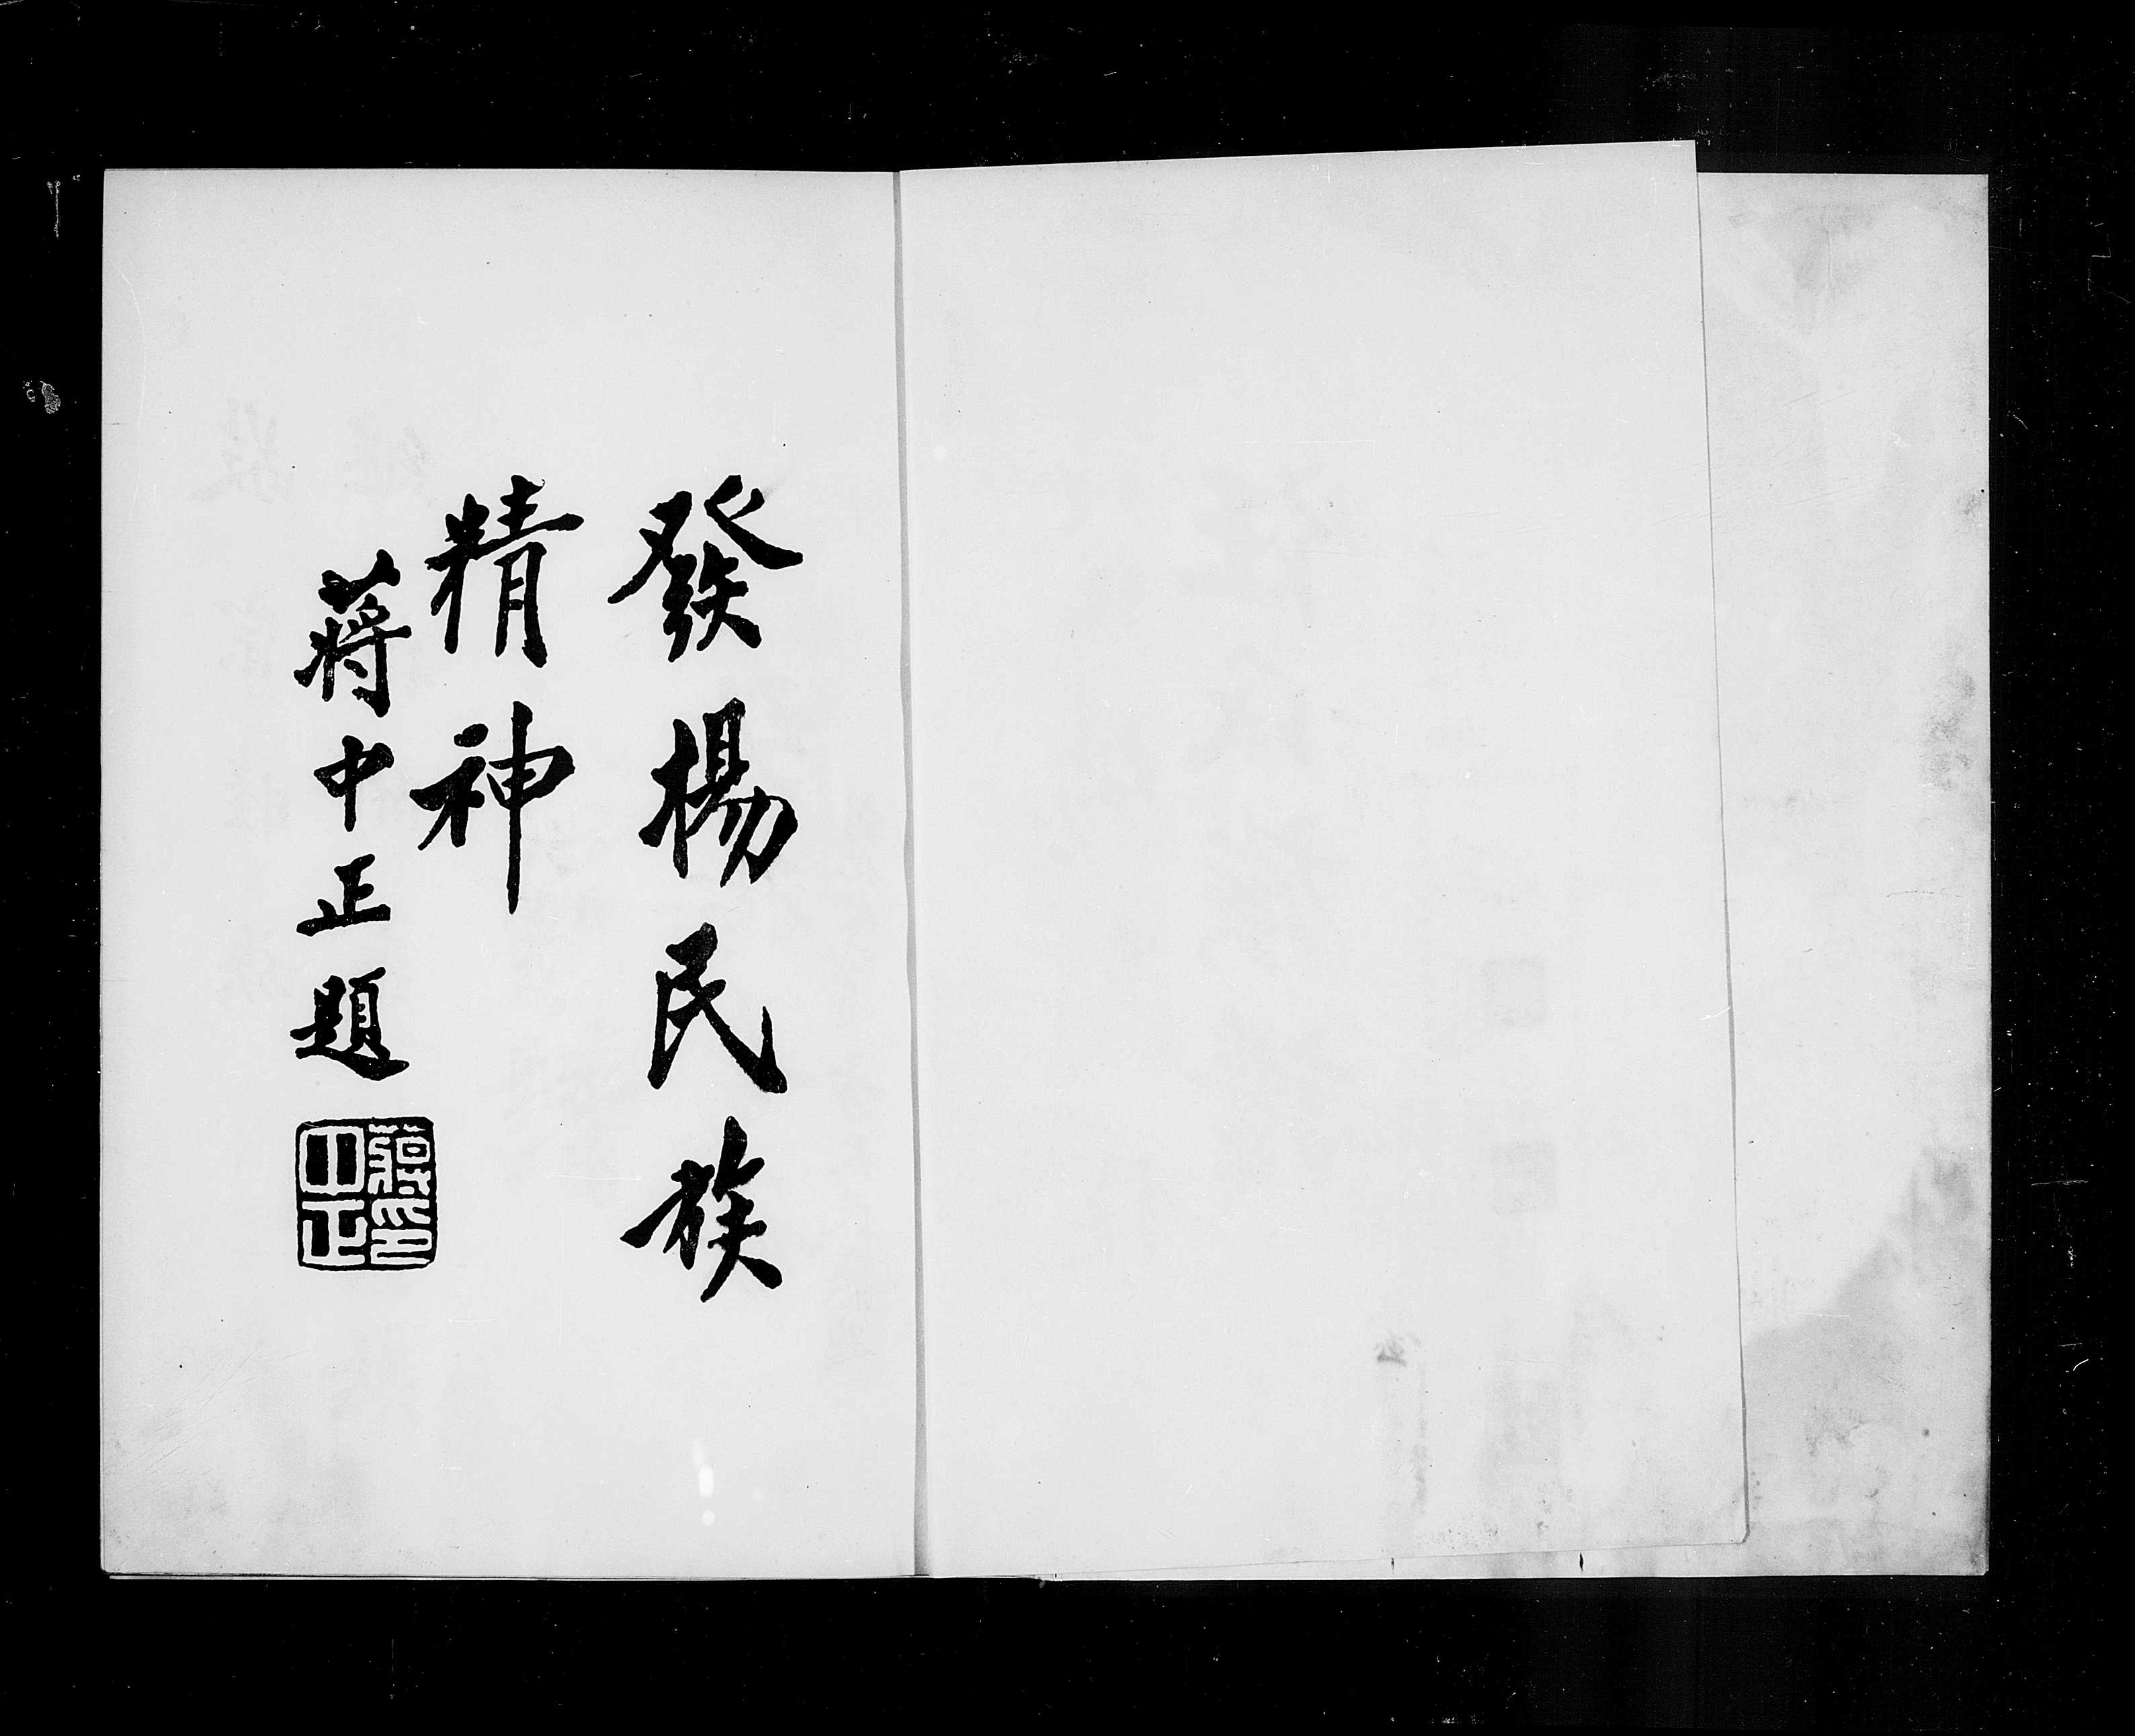 發楊民族
精神
蔣中正題
蔣印
中正